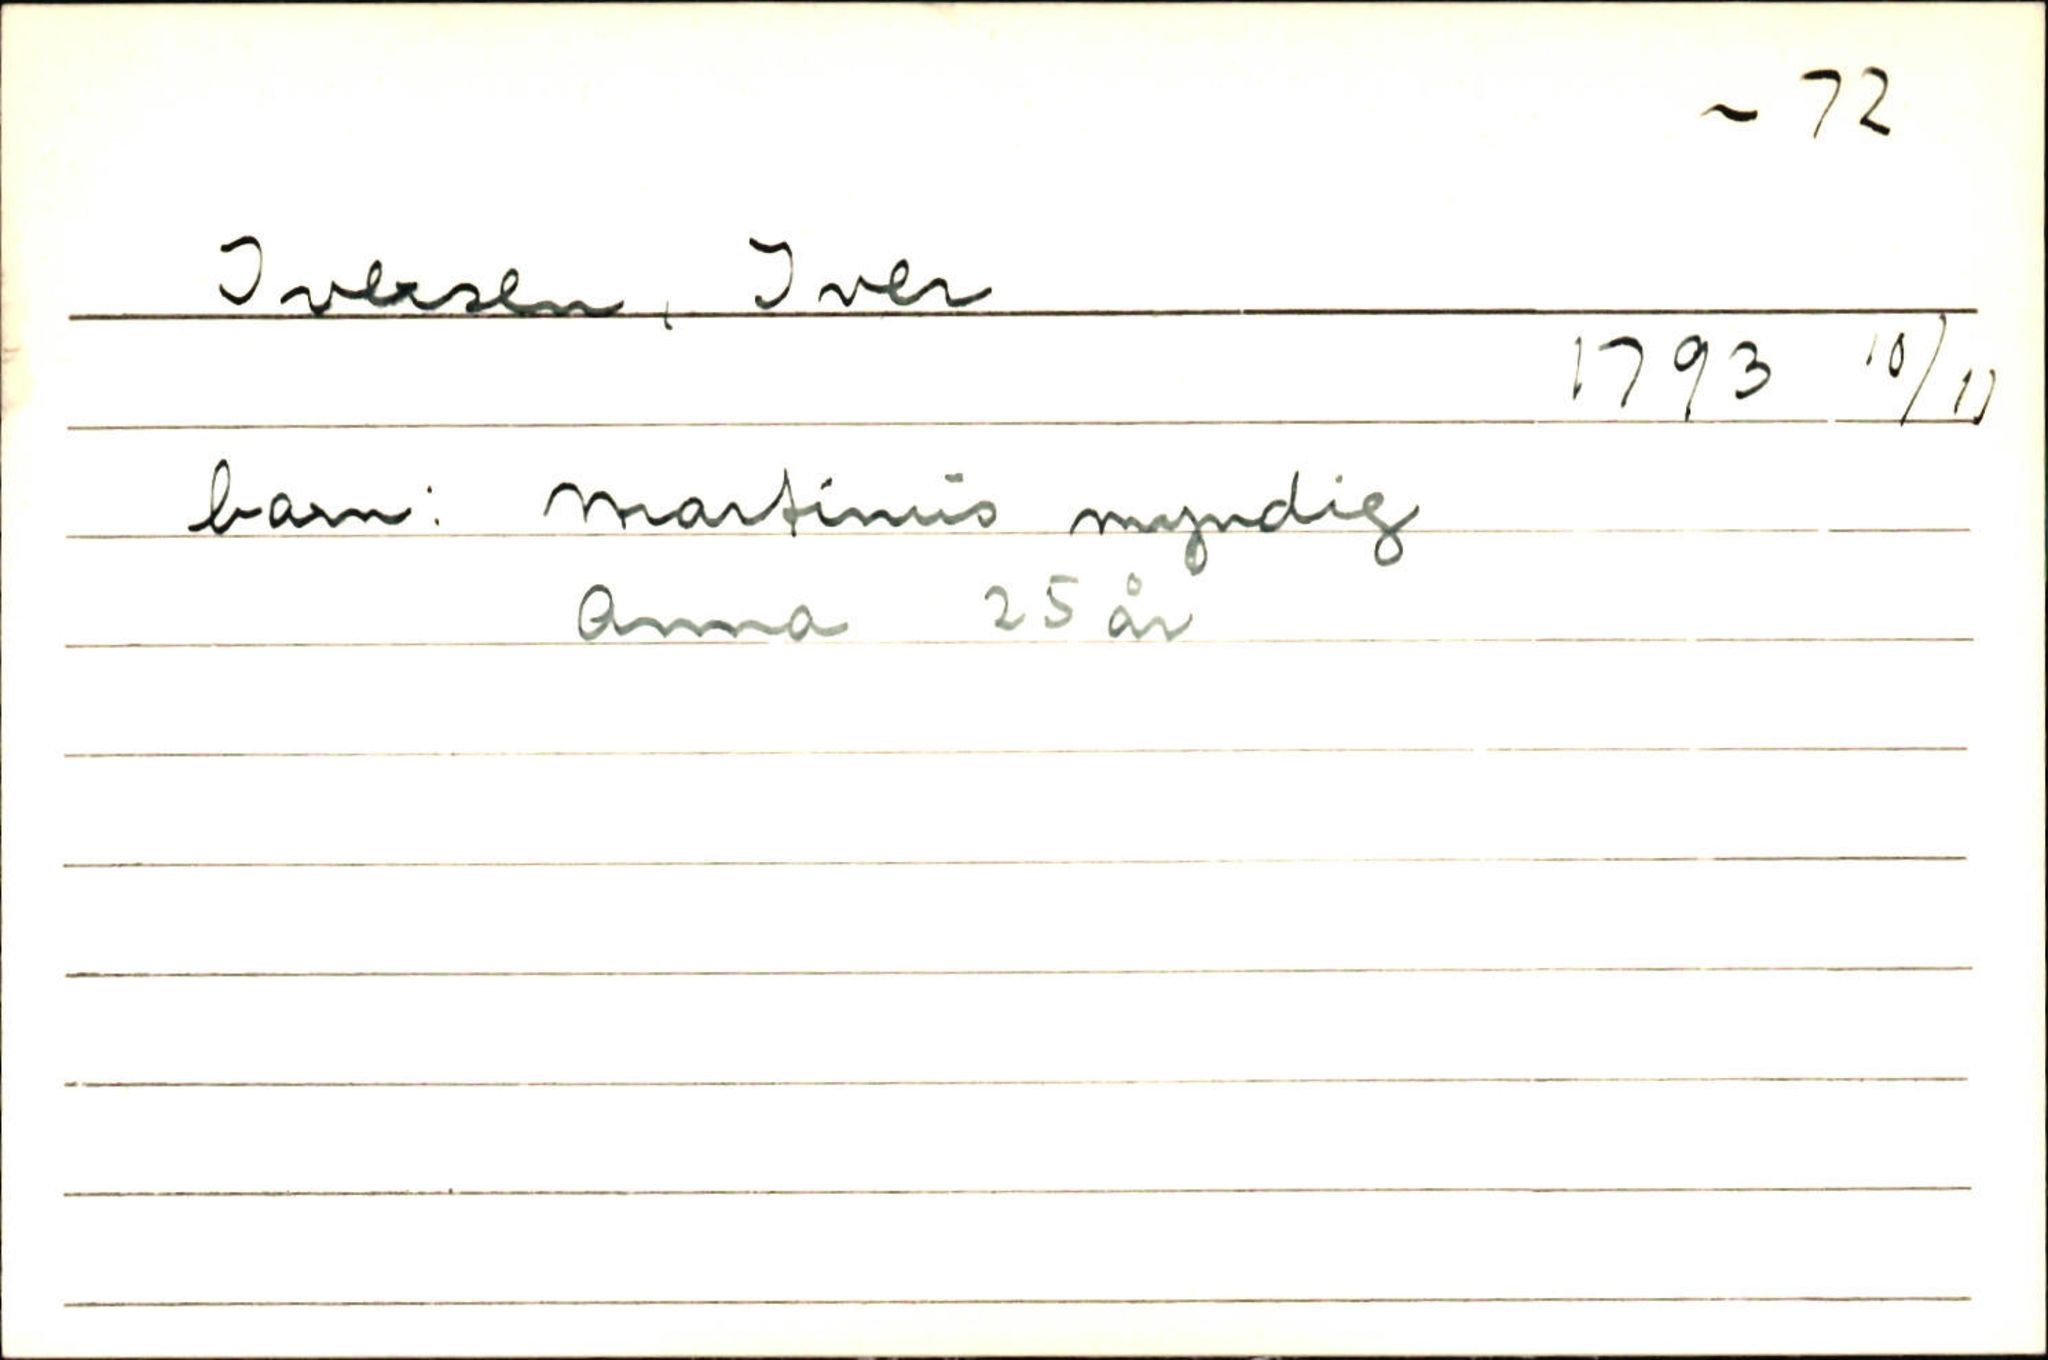 ~ 72
Iversen, Iver
1793 10/11
barn: Martinus myndig
Anna 25 år